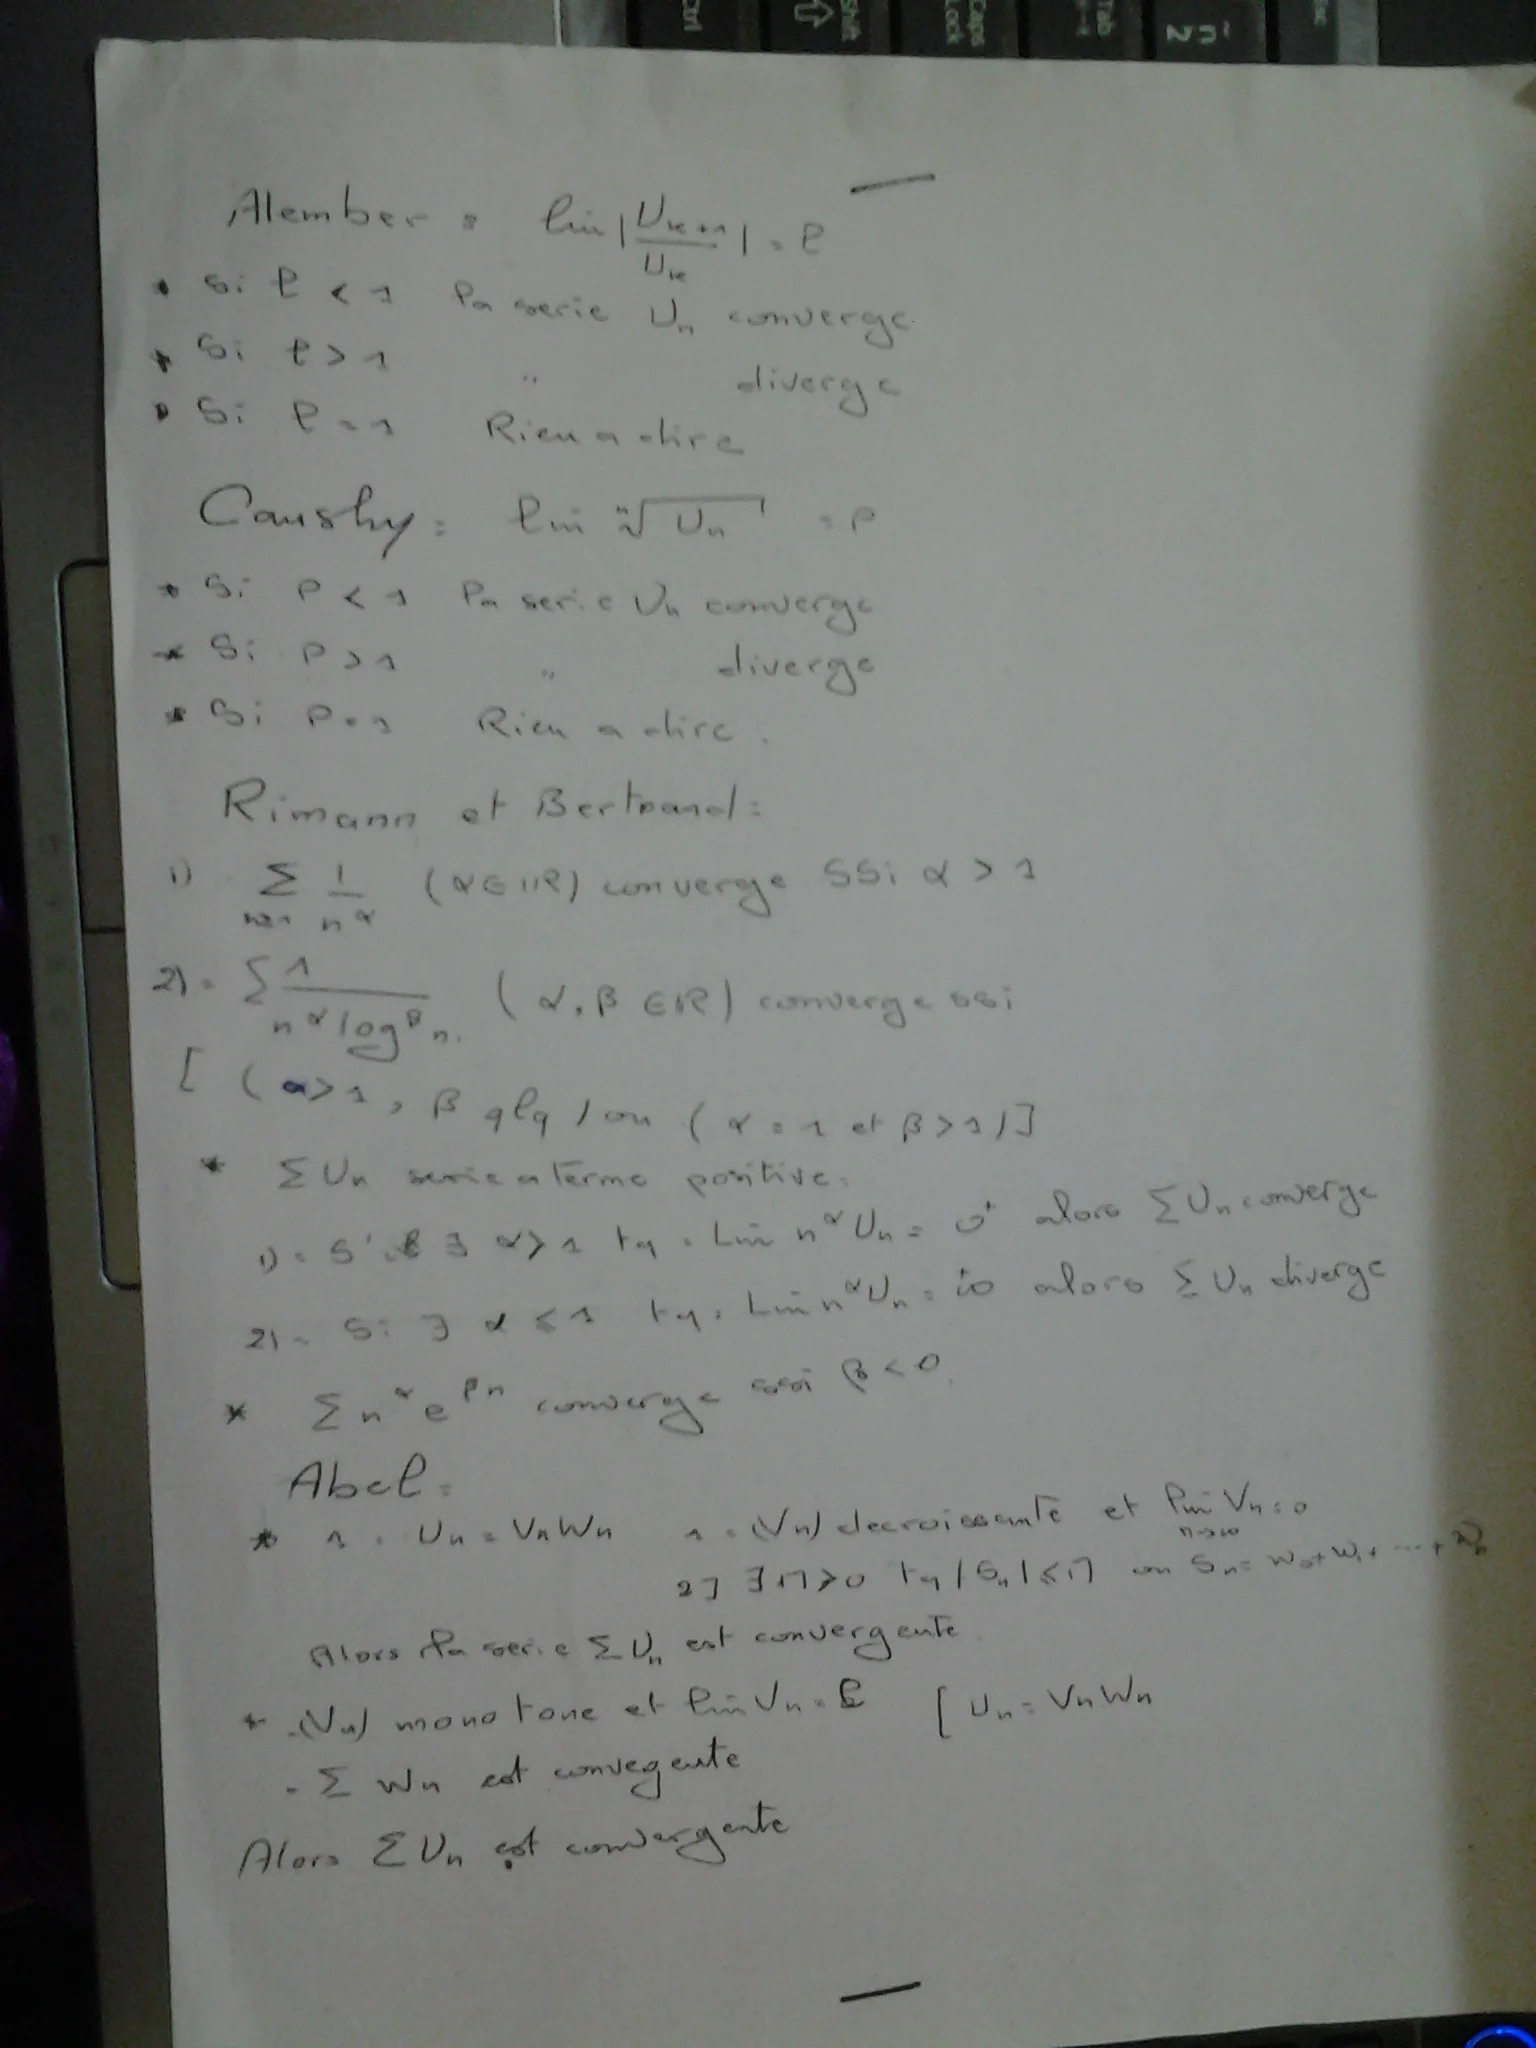 Ctrl
Shift
Caps Lock
Tab
Esc
Alember = lim |U_{k+1}/U_k| = ℓ
* Si ℓ < 1 la serie U_n converge
* Si ℓ > 1 " diverge
* Si ℓ = 1 Rien a dire
Caushy : lim ⁿ√U_n = ρ
* Si ρ < 1 la serie U_n converge
* Si ρ > 1 " diverge
* Si ρ = 1 Rien a dire.
Rimann et Bertrand :
1) Σ_{n≥1} 1/n^α (α ∈ IR) converge SSi α > 1
2) = Σ 1/(n^α log^β n) (α, β ∈ IR) converge ssi
[ (α > 1, β qlq) ou (α = 1 et β > 1)]
* ΣU_n serie a terme positive.
1) = S' ∃ α > 1 tq. Lim n^α U_n = 0⁺ alors ΣU_n converge
2) = Si ∃ α ≤ 1 tq. Lim n^α U_n = +∞ alors ΣU_n diverge
* Σ n^α e^{βn} converge ssi β < 0.
Abel =
* 1. U_n = V_n W_n 1 = (V_n) decroissante et lim_{n→∞} V_n = 0
2] ∃ M > 0 tq |S_n| ≤ M ou S_n = W_0 + W_1 + ... + W_n
Alors la serie ΣU_n est convergente
* -(V_n) monotone et lim V_n = ℓ [ U_n = V_n W_n
- Σ W_n est convegente
Alors ΣU_n est convergente